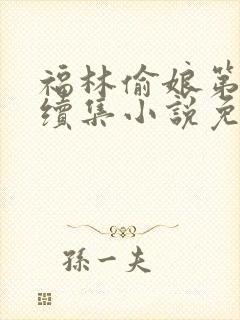 福林偷娘第
續集小說免
孫一夫